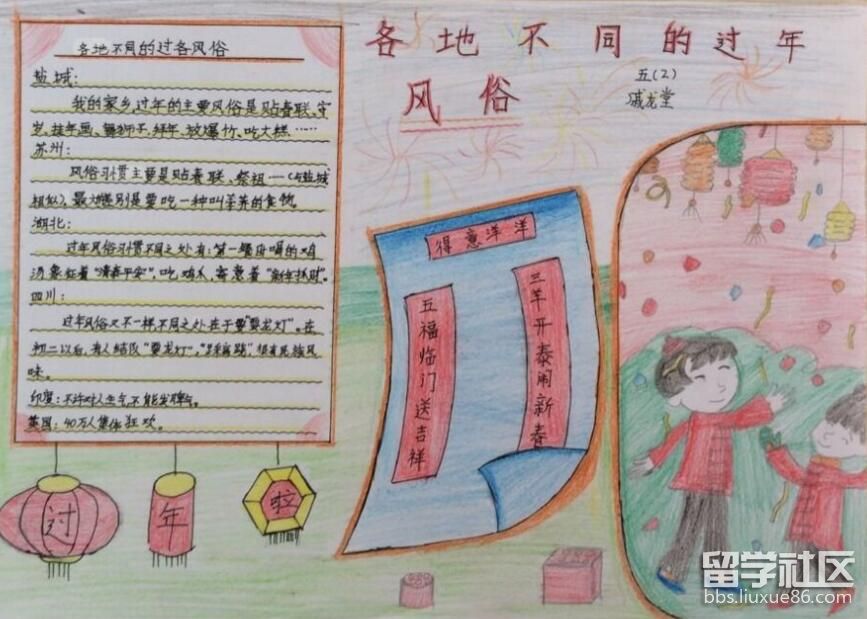 各地不同的过年
风俗
五(2)
戚龙堂
各地不同的过各风俗
盐城:
我的家乡,过年的主要风俗是贴春联、守
岁、挂年画、舞狮子、拜年、放爆竹、吃大糕……
苏州:
风俗习惯主要是贴春联、祭祖……(与盐城
相似),最大差别是要吃一种叫 的食物。
湖北:
过年风俗习惯不同之处有:第一 喝的鸡
汤象征着“清泰平安”,吃鸡爪,寓意着“新年抓财”。
四川:
过年风俗又不一样不同之处在于要“耍龙灯”。在
初二以后,有人结队“耍龙灯”,“踩高跷”,很有民族风
味。
印度:不许对人生气不能发脾气。
英国:40万人集体狂欢。
得意洋洋
五福临门送吉祥
三羊开泰闹新春
过
年
啦
留学社区
bbs.liuxue86.com